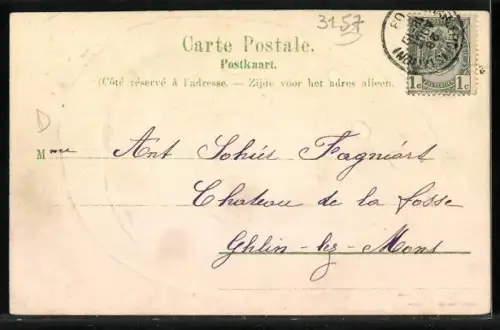 3257
Carte Postale.
Postkaart.
(Côté réservé à l'adresse. — Zijde voor het adres alleen.
1c 1c
D
Mme Ant Sohier Fagniart
Chateau de la fosse
Ghlin-lez-Mons